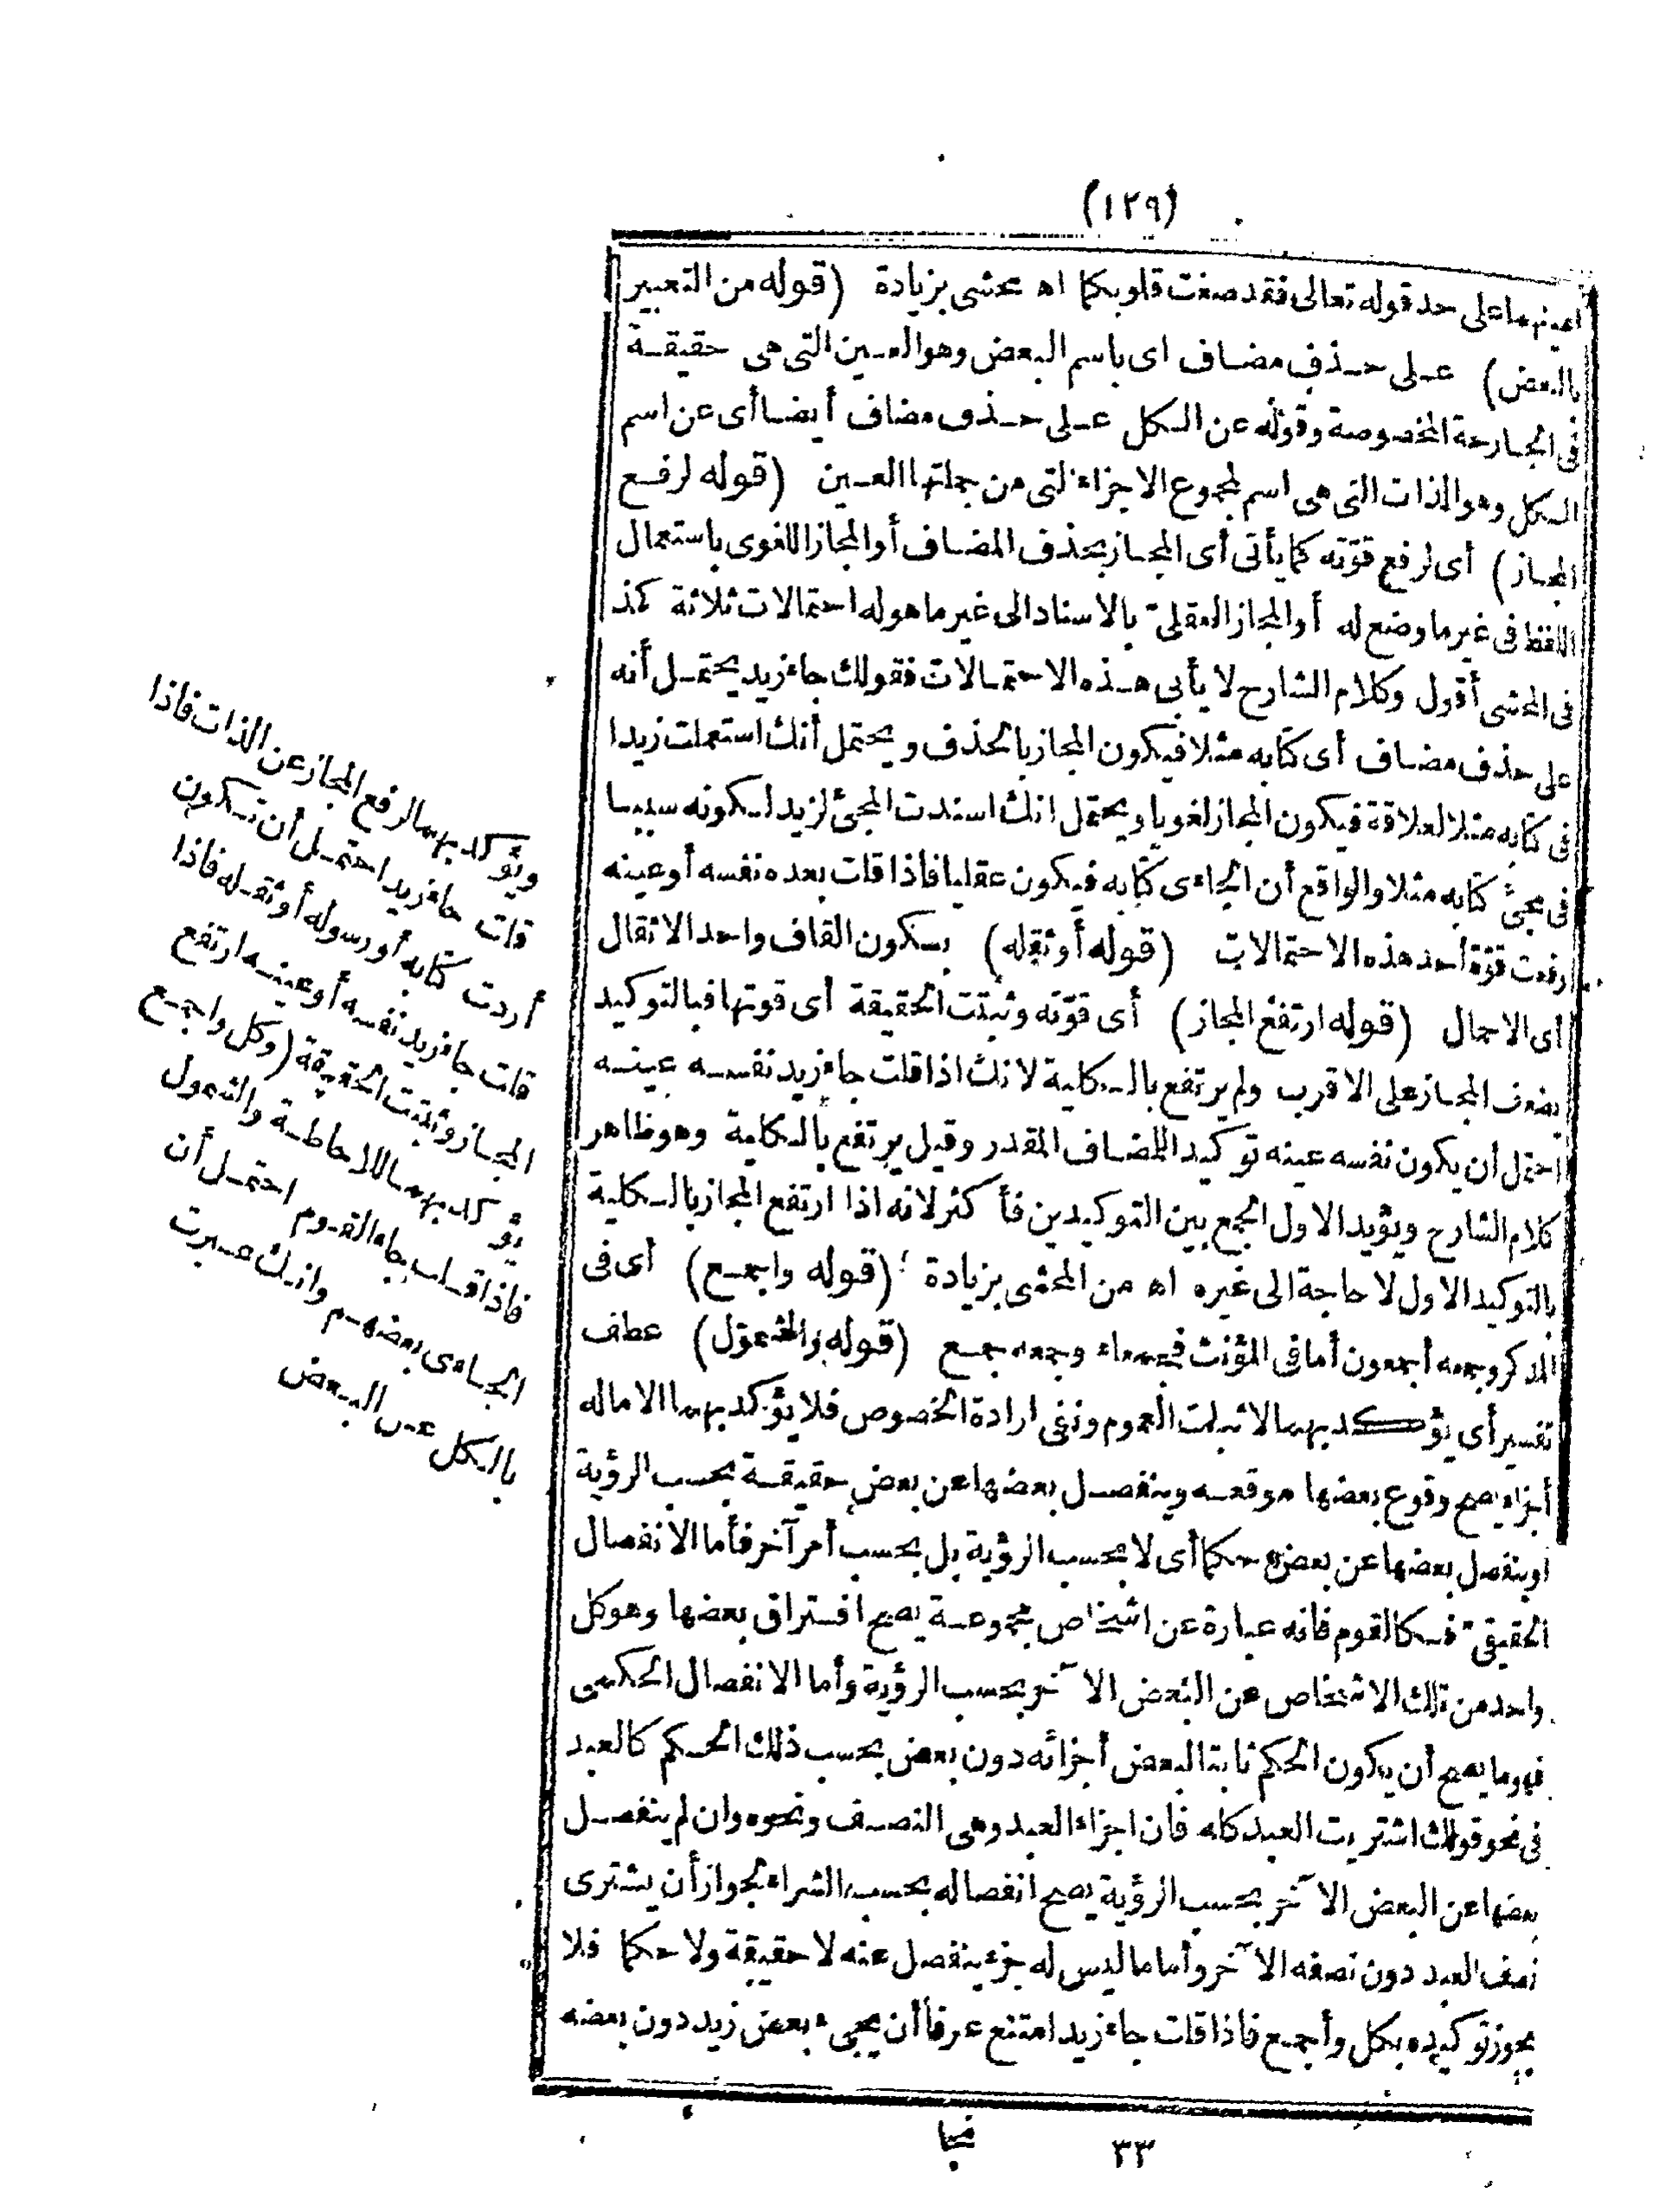 (١٢٩)
اعينهما على حد قوله تعالى فقد صغت قلوبكما اه محشى بزيادة (قوله من التعبير
بالبعض) على حذف مضاف اى باسم البعض وهو العين التى هى حقيقة
فى الجارحة المخصوصة وقوله عن الكل على حذف مضاف أيضا أى عن اسم
الكل وهو الذات التى هى اسم لمجموع الاجزاء التى من جملتها العين (قوله لرفع
المجاز) أى لرفع قوّته كما يأتى أى المجاز بحذف المضاف أو المجاز اللغوى باستعمال
اللفظ فى غير ما وضع له أو المجاز العقلىّ بالاسناد الى غير ما هو له احتمالات ثلاثة كذا
فى المحشى أقول وكلام الشارح لا يأبى هذه الاحتمالات فقولك جاء زيد يحتمل أنه
على حذف مضاف أى كتابه مثلا فيكون المجاز بالحذف ويحتمل أنك استعملت زيدا
فى كتابه مثلا لعلاقة فيكون المجاز لغويا ويحتمل انك اسندت المجئ لزيد لكونه سببا
فى مجئ كتابه مثلا والواقع أن الجاءى كتابه فيكون عقليا فاذا قلت بعده نفسه أو عينه
رفعت قوّة أحد هذه الاحتمالات (قوله أو ثقله) بسكون القاف واحد الاثقال
أى الاحمال (قوله ارتفع المجاز) أى قوّته وثبتت الحقيقة أى قوتها فبالتوكيد
يضعف المجاز على الاقرب ولم يرتفع بالكلية لانك اذا قلت جاء زيد نفسه عينه
احتمل أن يكون نفسه عينه توكيدا للمضاف المقدر وقيل يرتفع بالكلية وهو ظاهر
كلام الشارح ويؤيد الاول الجمع بين التوكيدين فأكثر لانه اذا ارتفع المجاز بالكلية
بالتوكيد الاول لا حاجة الى غيره اه من المحشى بزيادة (قوله واجمع) أى فى
المذكر وجمعه أجمعون أما فى المؤنث فجمعاء وجمعه جمع (قوله والشمول) عطف
تفسير أى يؤكد بهما لاثبات العموم ونفى ارادة الخصوص فلا يؤكد بهما الا ما له
أجزاء يصح وقوع بعضها موقعه وينفصل بعضها عن بعض حقيقة بحسب الرؤية
أو ينفصل بعضها عن بعض حكما أى لا بحسب الرؤية بل بحسب أمر آخر فأما الانفصال
الحقيقىّ فكالقوم فانه عبارة عن اشخاص مجموعة يصح افتراق بعضها وهو كل
واحد من تلك الاشخاص عن البعض الآخر بحسب الرؤية وأما الانفصال الحكمى
فهو ما يصح أن يكون الحكم ثابتا لبعض أجزائه دون بعض بحسب ذلك الحكم كالعبد
فى نحو قولك اشتريت العبد كله فان اجزاء العبد وهى النصف ونحوه وان لم ينفصل
بعضها عن البعض الآخر بحسب الرؤية يصح انفصاله بحسب الشراء لجواز أن يشترى
نصف العبد دون نصفه الآخر وأما ما ليس له جزء ينفصل عنه لا حقيقة ولا حكما فلا
يجوز توكيده بكل وأجمع فاذا قلت جاء زيد امتنع عرفا أن يجىء بعض زيد دون بعضه
٣٣
ويؤكد بهما لرفع المجاز عن الذات فاذا
قلت جاء زيد احتمل أن تكون
أردت كتابه أو رسوله أو ثقله فاذا
قلت جاء زيد نفسه أو عينه ارتفع
المجاز وثبتت الحقيقة (وكل واجمع
يؤكد بهما للاحاطة والشمول
فاذا قلت جاء القوم احتمل أن
الجاءى بعضهم وانك عبرت
بالكل عن البعض